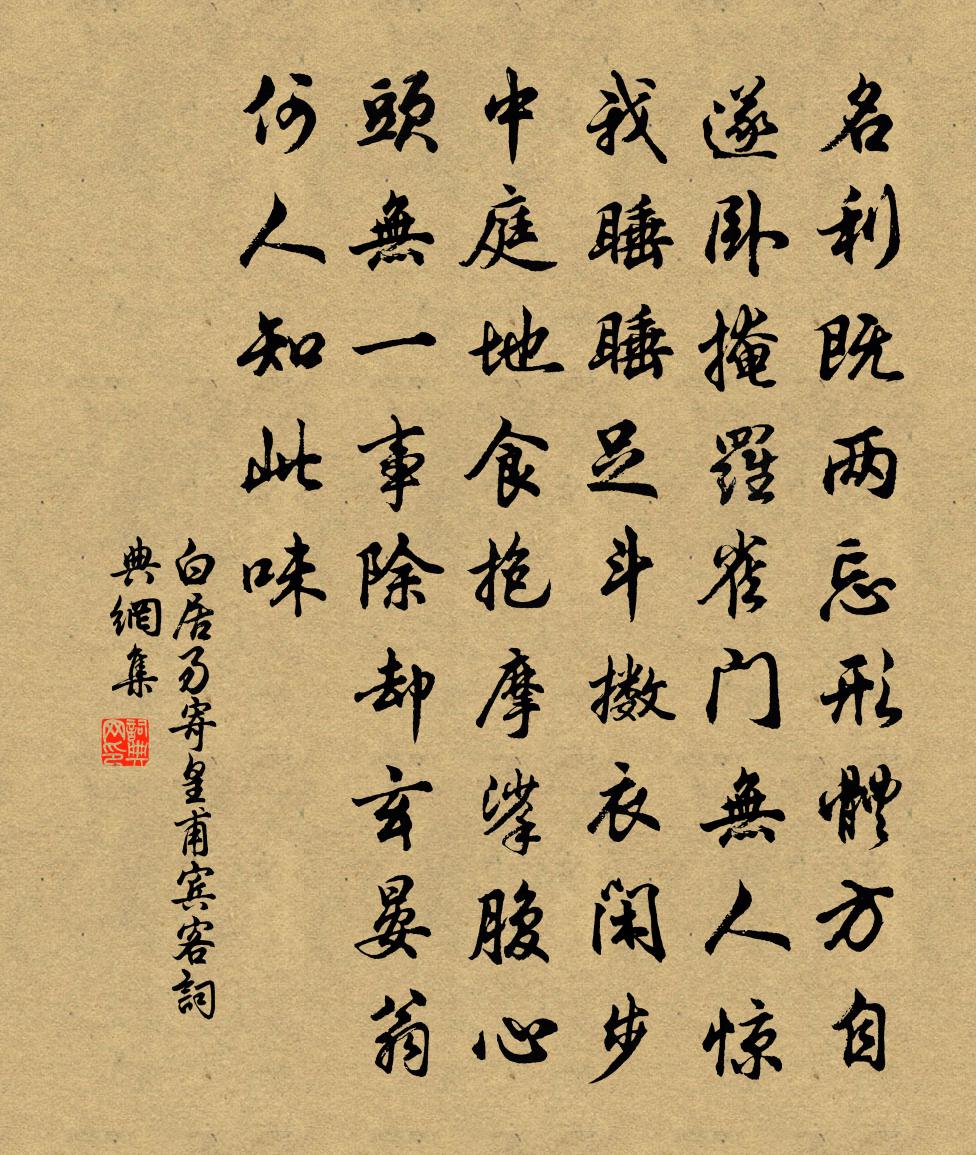 名利既两忘形體方自
遂卧掩羅雀门無人惊
我睡睡足斗擞衣闲步
中庭地食抱摩挲腹心
頭無一事除却玄晏翁
何人知此味
白居易寄皇甫宾客詞
典網集
詞典网印